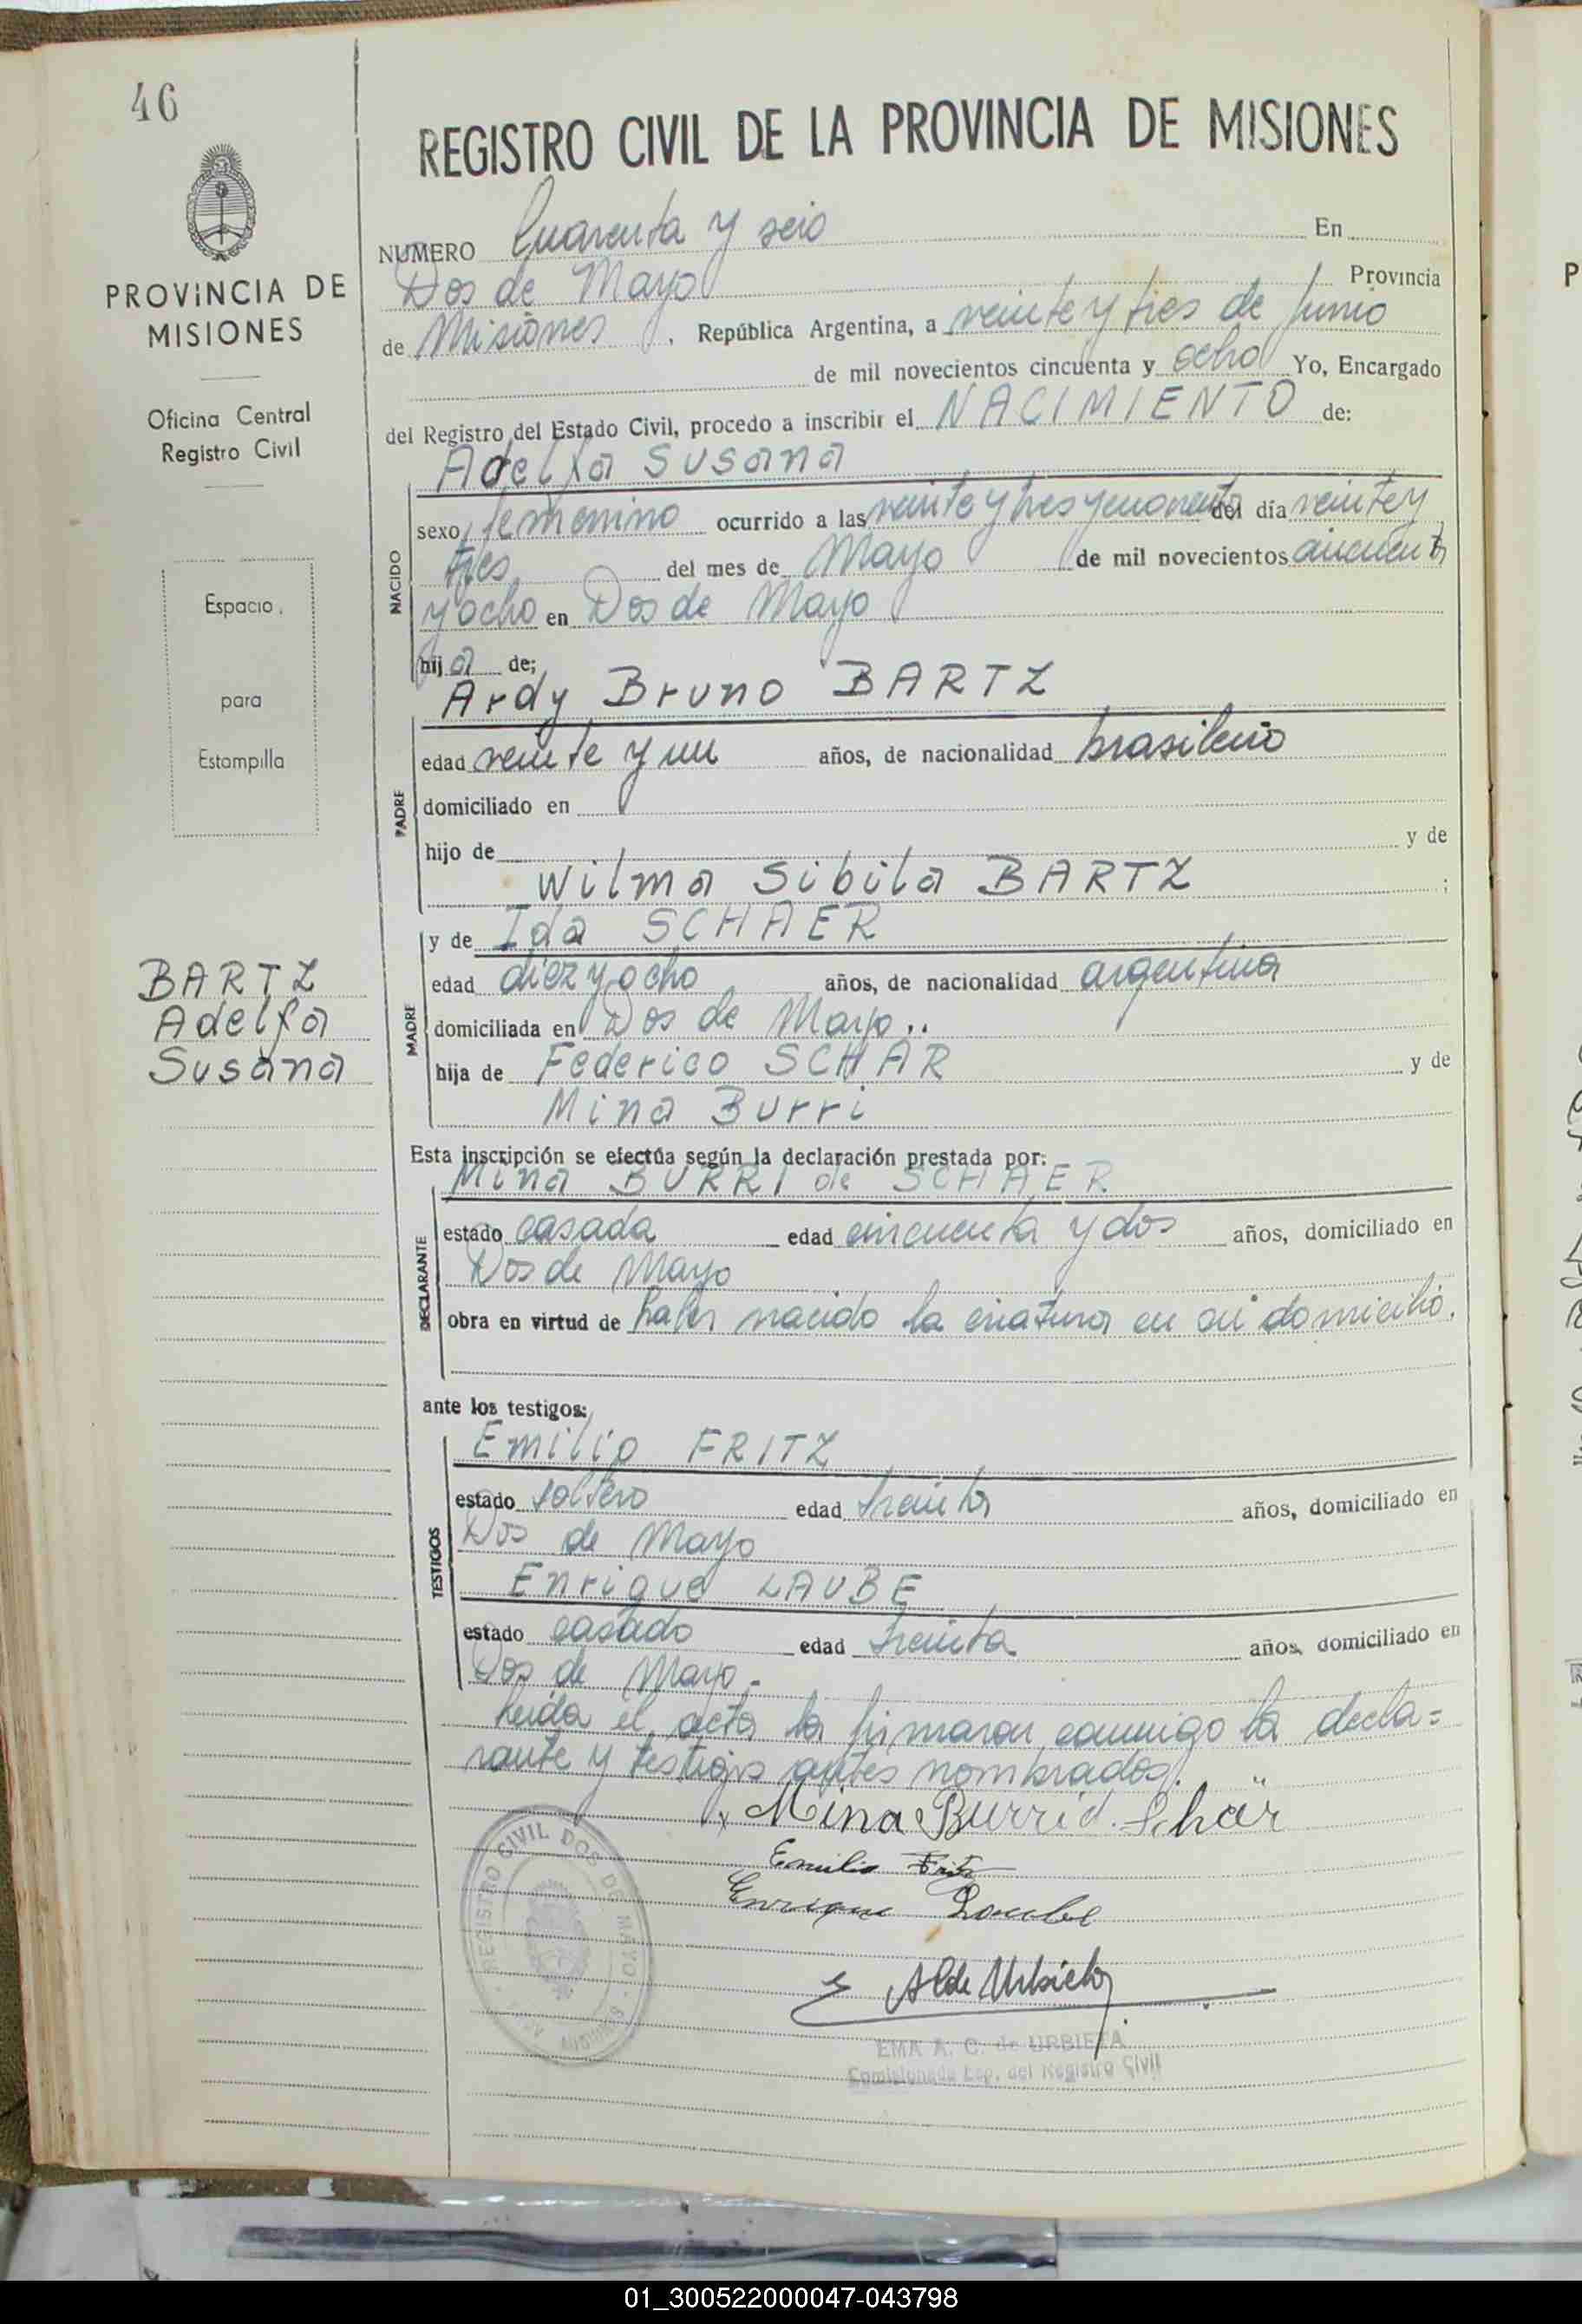 46
REGISTRO CIVIL DE LA PROVINCIA DE MISIONES
PROVINCIA DE
MISIONES
Oficina Central
Registro Civil
Espacio
para
Estampilla
BARTZ
Adelfa
Susana
NUMERO Cuarenta y seis En
Dos de Mayo Provincia
de Misiones, República Argentina, a veinte y tres de Junio
de mil novecientos cincuenta y ocho Yo, Encargado
del Registro del Estado Civil, procedo a inscribir el NACIMIENTO de:
Adelfa Susana
NACIDO
sexo femenino ocurrido a las veinte y tres y del día veinte y
tres del mes de Mayo de mil novecientos cincuenta
y ocho en Dos de Mayo
hija de;
Ardy Bruno BARTZ
PADRE
edad veinte y un años, de nacionalidad brasileño
domiciliado en
hijo de y de
Wilma Sibila BARTZ ;
y de Ida SCHAER
MADRE
edad diez y ocho años, de nacionalidad argentina
domiciliada en Dos de Mayo..
hija de Federico SCHÄR y de
Mina Burri
Esta inscripción se efectúa según la declaración prestada por:
Mina BURRI de SCHAER
DECLARANTE
estado casada edad cincuenta y dos años, domiciliado en
Dos de Mayo
obra en virtud de haber nacido la criatura en su domicilio.
ante los testigos:
Emilio FRITZ
TESTIGOS
estado soltero edad treinta años, domiciliado en
Dos de Mayo
Enrique LAUBE
estado casado edad treinta años, domiciliado en
Dos de Mayo.-
Leida el acta la firmaron conmigo la decla=
rante y testigos antes nombrados.
Mina Burri d. Schär
Emilio Fritz
Enrique
REGISTRO CIVIL DOS DE MAYO - MISIONES
EMA A. C. de URBIETA
Comisionada Esp. del Registro Civil
01_300522000047-043798